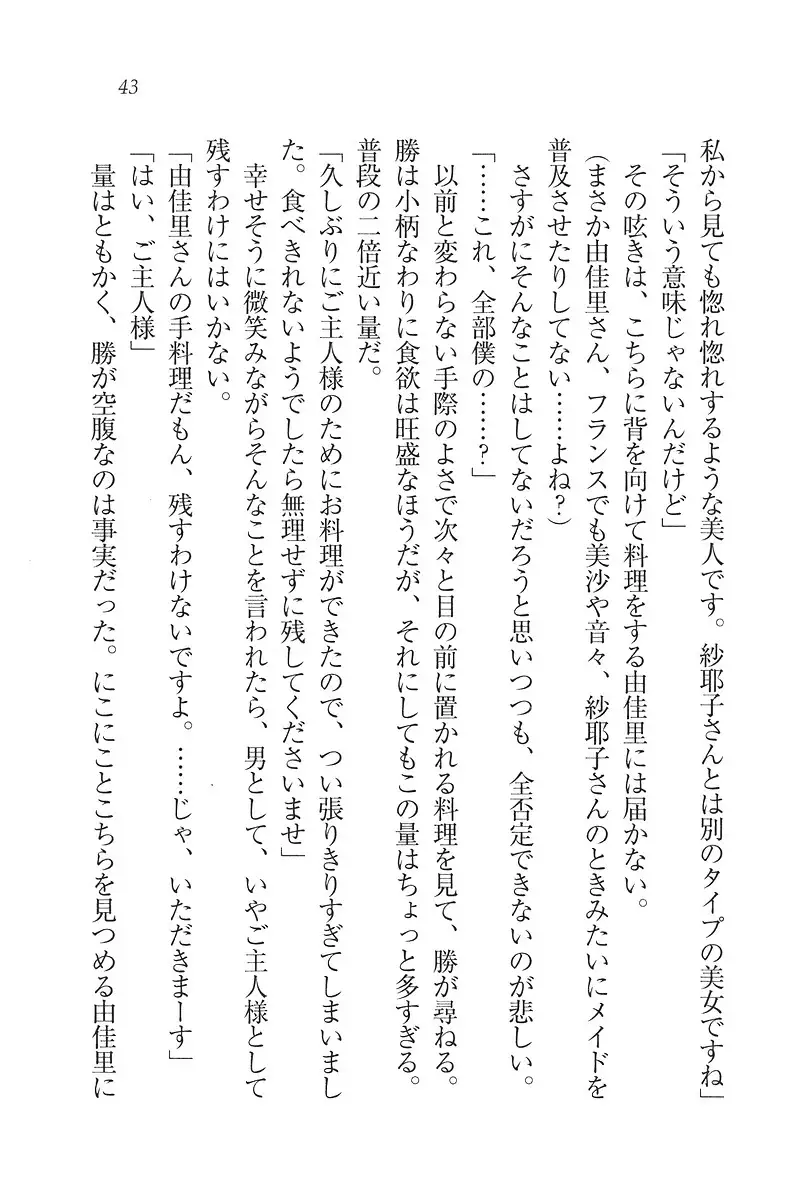 43
私から見ても惚れ惚れするような美人です。紗耶子さんとは別のタイプの美女ですね」
「そういう意味じゃないんだけど」
その呟きは、こちらに背を向けて料理をする由佳里には届かない。
(まさか由佳里さん、フランスでも美沙や音々、紗耶子さんのときみたいにメイドを
普及させたりしてない……よね?)
さすがにそんなことはしてないだろうと思いつつも、全否定できないのが悲しい。
「……これ、全部僕の……?」
以前と変わらない手際のよさで次々と目の前に置かれる料理を見て、勝が尋ねる。
勝は小柄なわりに食欲は旺盛なほうだが、それにしてもこの量はちょっと多すぎる。
普段の二倍近い量だ。
「久しぶりにご主人様のためにお料理ができたので、つい張りきりすぎてしまいまし
た。食べきれないようでしたら無理せずに残してくださいませ」
幸せそうに微笑みながらそんなことを言われたら、男として、いやご主人様として
残すわけにはいかない。
「由佳里さんの手料理だもん、残すわけないですよ。……じゃ、いただきまーす」
「はい、ご主人様」
量はともかく、勝が空腹なのは事実だった。にこにことこちらを見つめる由佳里に